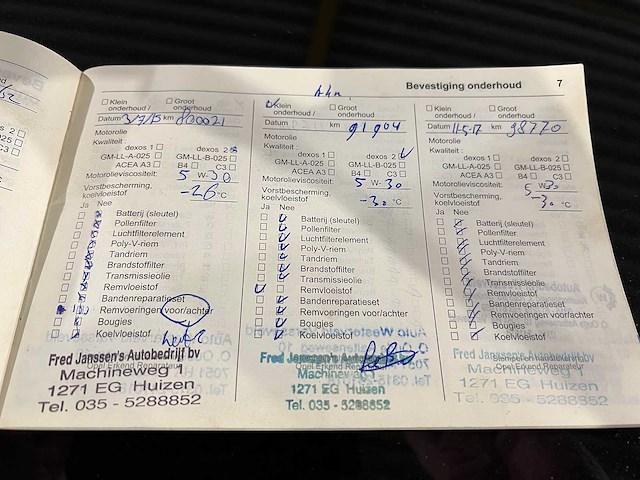 Bevestiging onderhoud 7
Klein onderhoud / Groot onderhoud
Datum 3/7/15 km
Motorolie
Kwaliteit:
dexos 1 dexos 2
GM-LL-A-025 GM-LL-B-025
ACEA A3 B4 C3
Motorolieviscositeit: 5 W-30
Vorstbescherming,
koelvloeistof -26 °C
Ja Nee
Batterij (sleutel)
Pollenfilter
Luchtfilterelement
Poly-V-riem
Tandriem
Brandstoffilter
Transmissieolie
Remvloeistof
Bandenreparatieset
Remvoeringen voor/achter
Bougies
Koelvloeistof
Fred Janssen's Autobedrijf bv
Machineweg 1
1271 EG Huizen
Tel. 035 - 5288852
Klein onderhoud / Groot onderhoud
Datum km 91904
Motorolie
Kwaliteit:
dexos 1 dexos 2
GM-LL-A-025 GM-LL-B-025
ACEA A3 B4 C3
Motorolieviscositeit: 5 W-30
Vorstbescherming,
koelvloeistof °C
Ja Nee
Batterij (sleutel)
Pollenfilter
Luchtfilterelement
Poly-V-riem
Tandriem
Brandstoffilter
Transmissieolie
Remvloeistof
Bandenreparatieset
Remvoeringen voor/achter
Bougies
Koelvloeistof
Fred Janssen's Autobedrijf bv
Machineweg 1
1271 EG Huizen
Tel. 035 - 5288852
Klein onderhoud / Groot onderhoud
Datum 11-5-17 km 98770
Motorolie
Kwaliteit:
dexos 1 dexos 2
GM-LL-A-025 GM-LL-B-025
ACEA A3 B4 C3
Motorolieviscositeit: 5 W-30
Vorstbescherming,
koelvloeistof °C
Ja Nee
Batterij (sleutel)
Pollenfilter
Luchtfilterelement
Poly-V-riem
Tandriem
Brandstoffilter
Transmissieolie
Remvloeistof
Bandenreparatieset
Remvoeringen voor/achter
Bougies
Koelvloeistof
Fred Janssen's Autobedrijf bv
Machineweg 1
1271 EG Huizen
Tel. 035 - 5288852